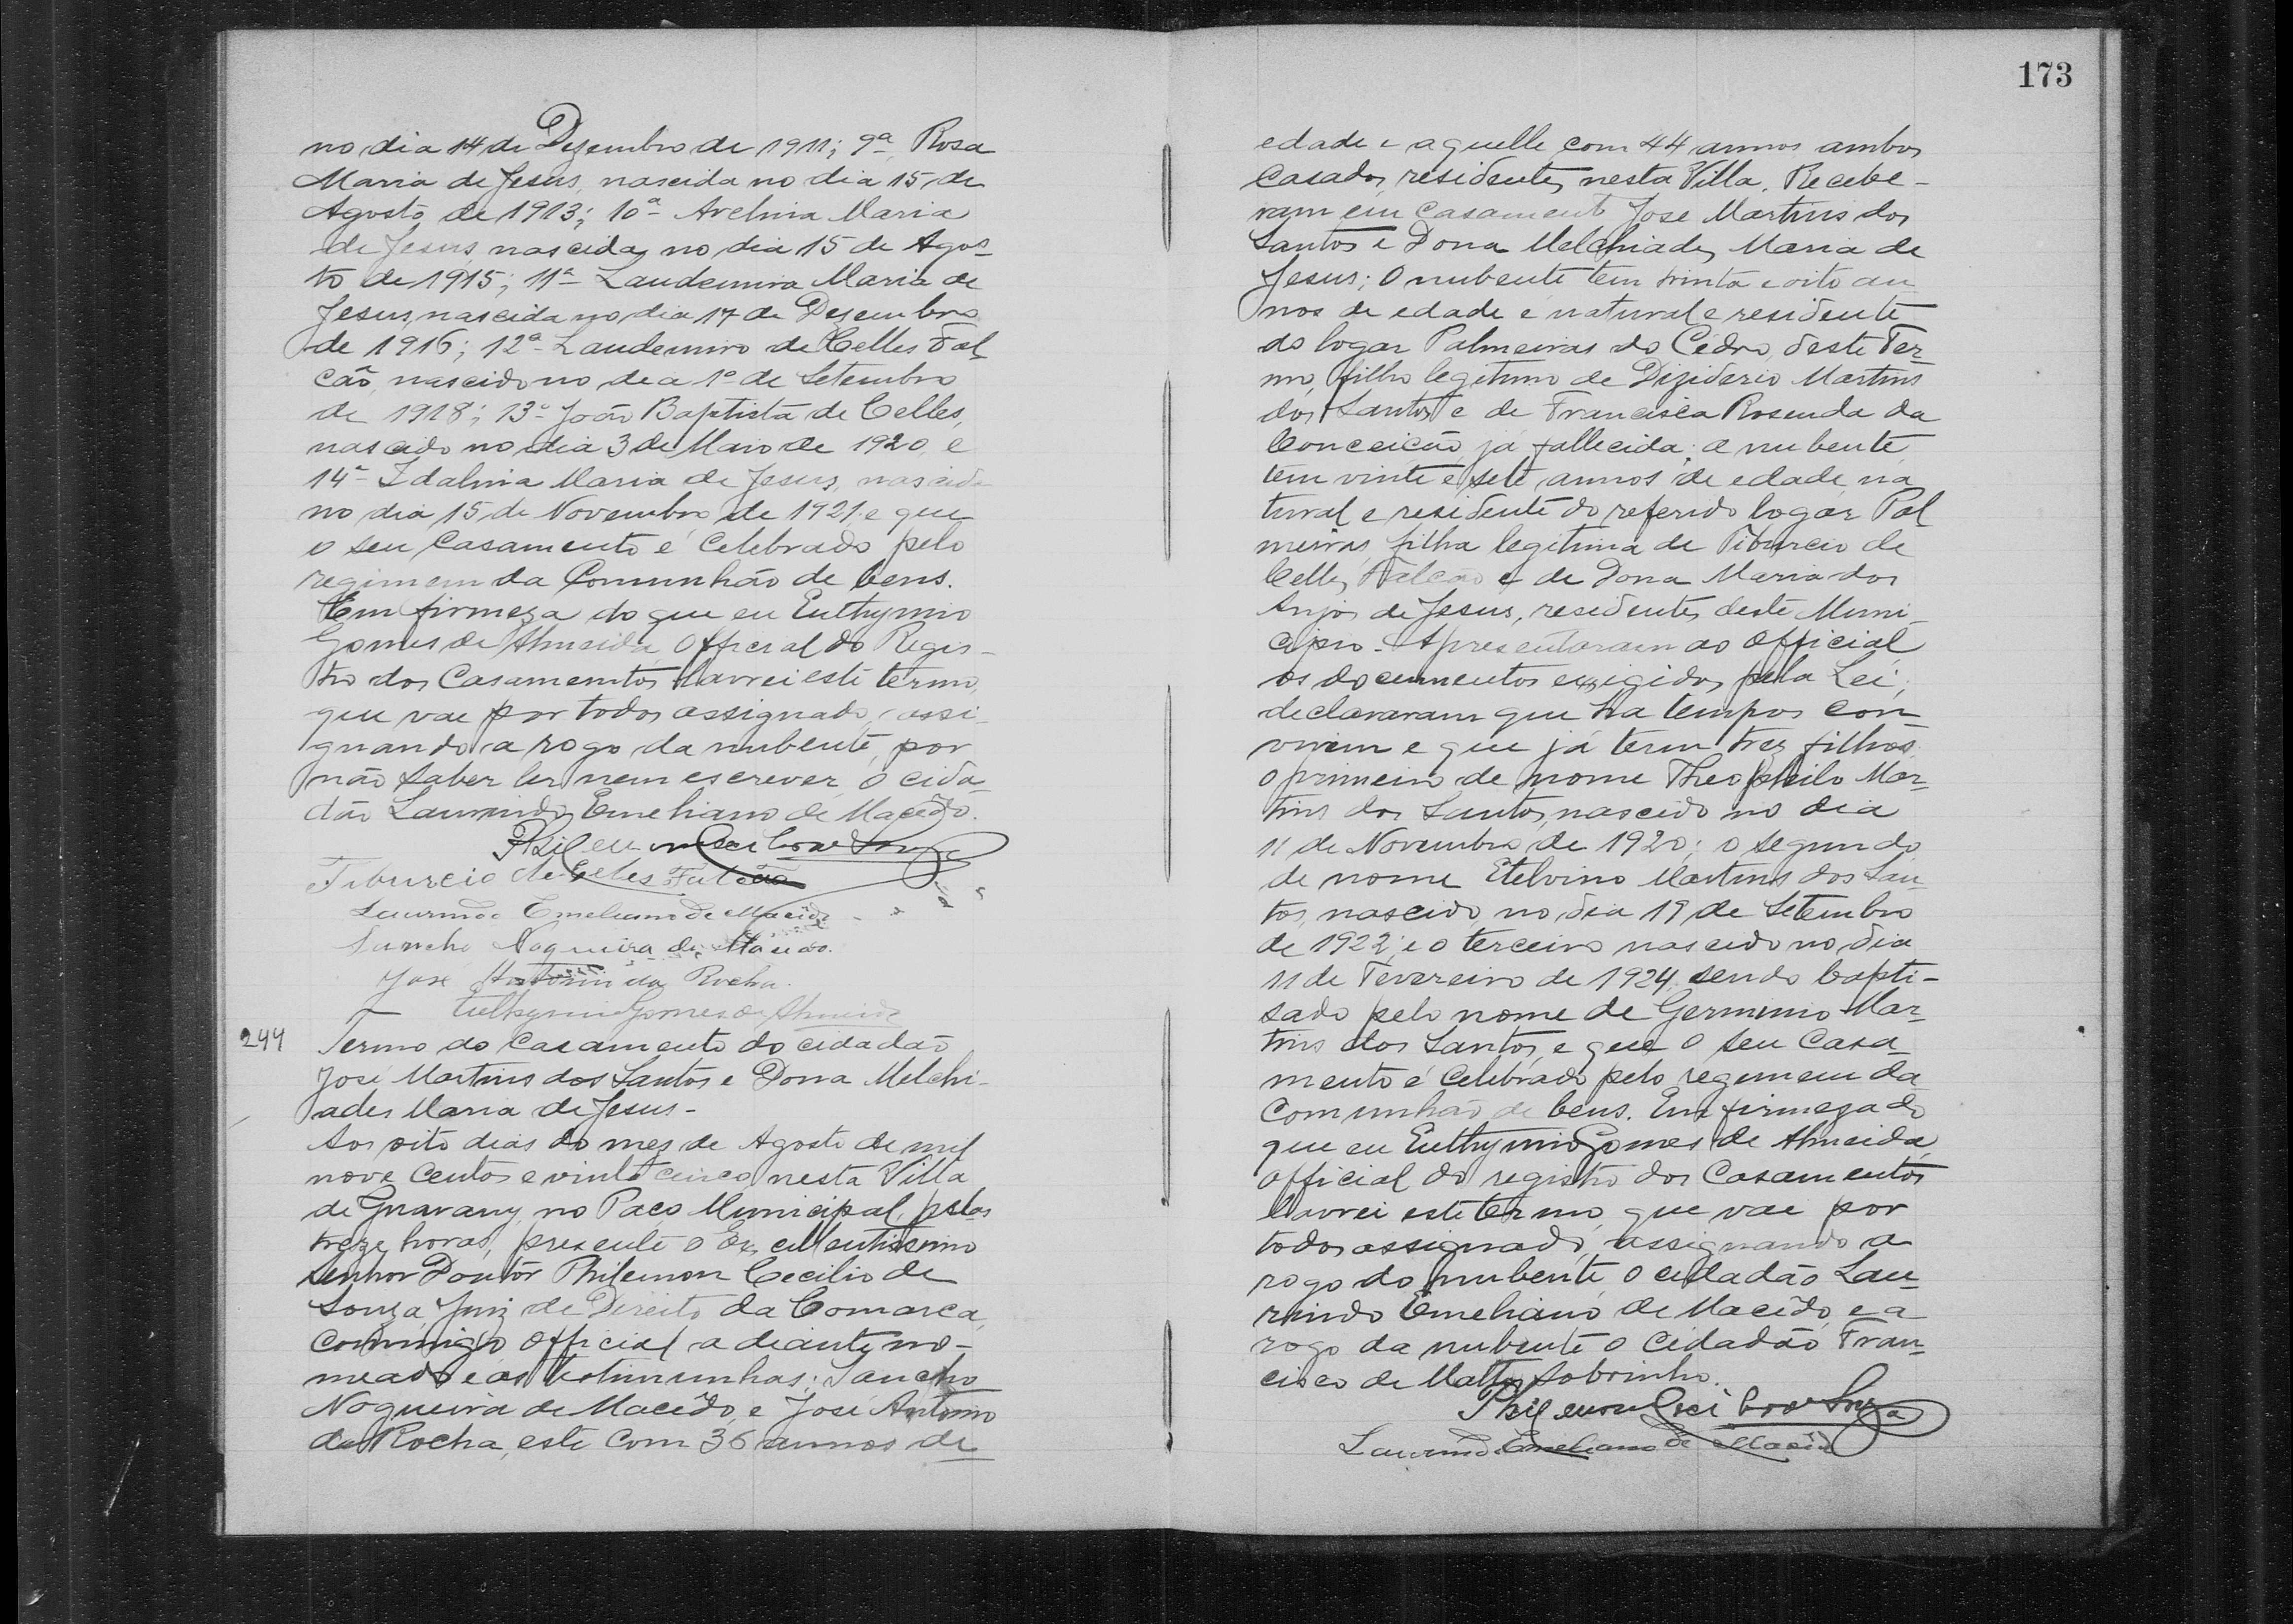 no dia 14 de Dezembro de 1911; 9ª Rosa
Maria de Jesus, nascida no dia 15 de
Agosto de 1913; 10ª Avelina Maria
de Jesus, nascida no dia 15 de Agos-
to de 1915; 11ª Laudemira Maria de
Jesus, nascida no dia 17 de Dezembro
de 1916; 12ª Laudemiro de Celles Fal
cão, nascido no dia 1º de Setembro
de 1918; 13º João Baptista de Celles,
nascido no dia 3 de Maio de 1920, e
14ª Idalina Maria de Jesus, nascida
no dia 15 de Novembro de 1921 e que
o seu casamento é celebrado pelo
regimem da Comunhão de bens.
Em firmeza do que eu Euthymio
Gomes de Almeida, Official do Regis-
tro dos Casamentos lavrei este termo,
que vae por todos assignado, assi-
gnando a rogo da nubente, por
não saber ler nem escrever, o cida-
dão Laurindo Emeliano de Macêdo.
Philemon Cecilio de Souza
Tiburcio de Celes Falcão
Laurindo Emeliano de Macêdo
Sancho Nogueira de Macêdo.
José Antonio da Rocha.
Euthymio Gomes de Almeida
244 Termo do casamento do cidadão
José Martins dos Santos e Dona Melchi-
ades Maria de Jesus -
Aos oito dias do mez de Agosto de mil
nove centos e vinte cinco nesta Villa
de Guarany, no Paço Municipal, pelas
treze horas, presente o Excellentissimo
Senhor Doutôr Philemon Cecilio de
Souza, Juiz de Direito da Comarca,
commigo official adiante no-
meado e as testimunhas; Sancho
Nogueira de Macêdo, e José Antonio
da Rocha, este com 36 annos de
173
edade e aquelle com 44 annos ambos
casados, residentes nesta Villa. Recebe-
ram em casamento José Martins dos
Santos e Dona Melchiades Maria de
Jesus; O nubente tem trinta e oito an
nos de edade é natural e residente
do logar Palmeiras do Cédro, deste Ter-
mo, filho legitimo de Diziderio Martins
dos Santos e de Francisca Rosenda da
Conceição, já fallecida; a nubente
tem vinte e sete annos de edade, na
tural e residente do referido logar Pal
meiras, filha legitima de Tiburcio de
Celles Falcão e de Dona Maria dos
Anjos de Jesus, residentes deste Muni-
cipio. Apresentaram ao official
os documentos exigidos pela Lei,
declararam que ha tempos con-
vivem e que já tem trez filhos
o primeiro de nome Theophilo Mar-
tins dos Santos, nascido no dia
11 de Novembro de 1920; o segundo
de nome Etelvino Martins dos San-
tos, nascido no dia 19 de Setembro
de 1922; e o terceiro nascido no dia
11 de Fevereiro de 1924, sendo bapti-
sado pelo nome de Germinio Mar-
tins dos Santos, e que o seu casa-
mento é celebrado pelo regimem da
comunhão de bens. Em firmeza do
que eu Euthymio Gomes de Almeida,
official do registro dos Casamentos
lavrei este termo que vae por
todos assignado, assignando a
rogo do nubente, o cidadão Lau-
rindo Emeliano de Macêdo, e a
rogo da nubente o cidadão Fran-
cisco de Mattos Sobrinho.
Philemon Cecilio de Souza
Laurindo Emeliano de Macêdo